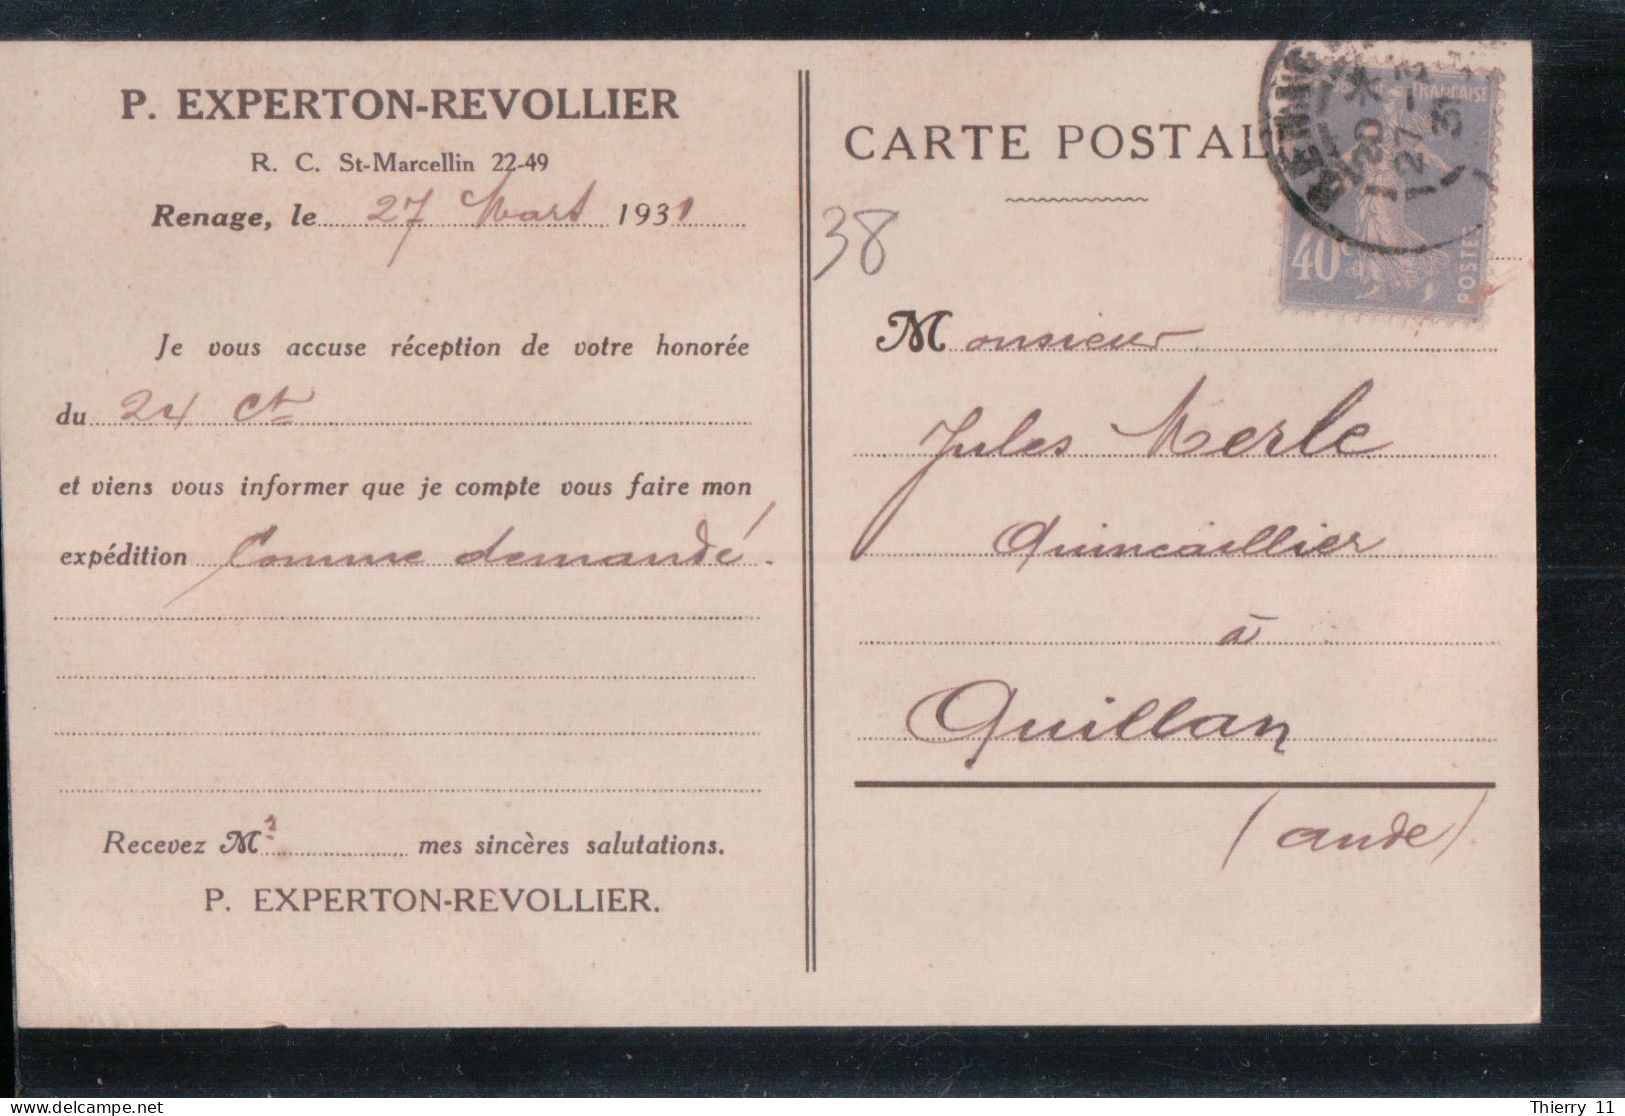 P. EXPERTON-REVOLLIER
R. C. St-Marcellin 22-49
Renage, le 27 Mars 1931
Je vous accuse réception de votre honorée
du 24 Ct
et viens vous informer que je compte vous faire mon
expédition Comme demandé.
Recevez Mr mes sincères salutations.
P. EXPERTON-REVOLLIER.
CARTE POSTALE
38
RENAGE
20
27 - 3
31
FRANÇAISE
40c
POSTES
Monsieur
Jules Merle
Quincaillier
à
Quillan
(Aude)
Thierry 11